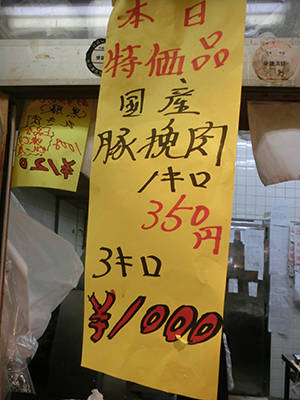 本日
特価品
国産
豚挽肉
1キロ
350円
3キロ
¥1000